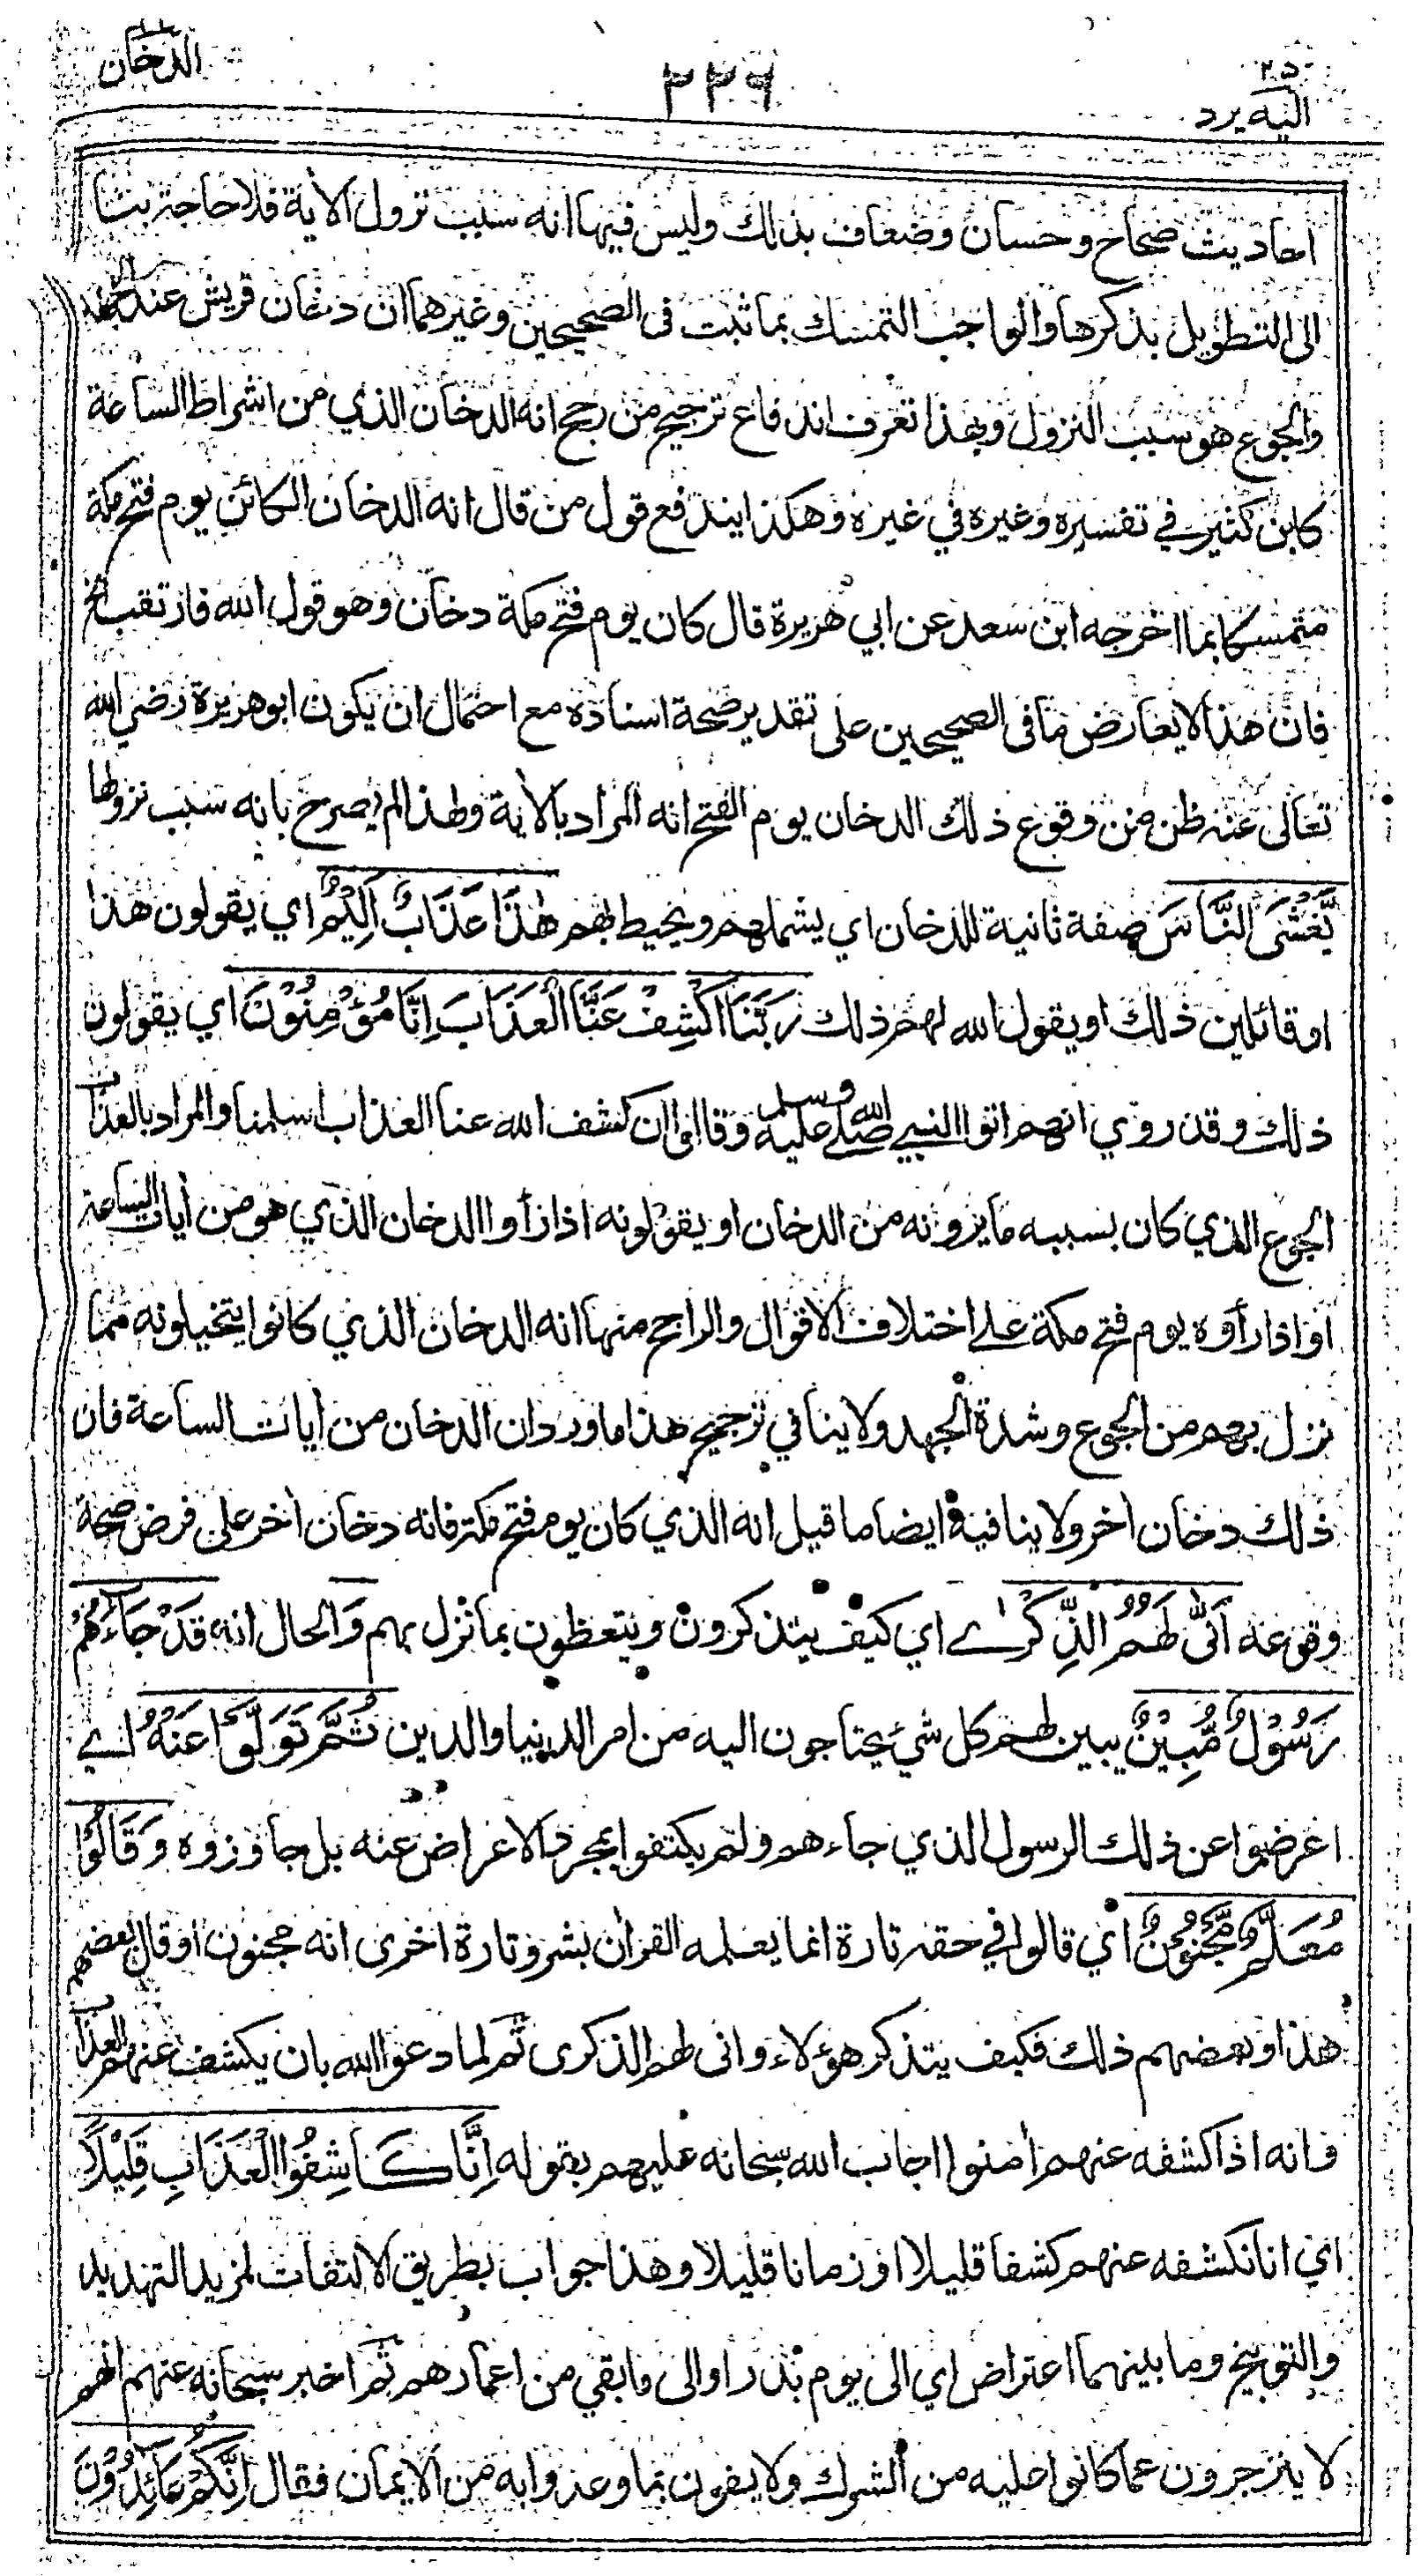 الدخان
٣٣٦
٢٥
اليه يرد
احاديث صحاح وحسان وضعاف بذلك وليس فيها انه سبب نزول الأية فلا حاجة بنا
الى التطويل بذكرها والواجب التمسك بما ثبت فى الصحيحين وغيرهما ان دخان قريش عند الجهد
والجوع هو سبب النزول وبهذا تعرف اندفاع ترجيح من رجح انه الدخان الذي من اشراط الساعة
كابن كثير في تفسيره وغيره في غيره وهكذا يندفع قول من قال انه الدخان الكائن يوم فتح مكة
متمسكا بما اخرجه ابن سعد عن ابي هريرة قال كان يوم فتح مكة دخان وهو قول الله فارتقب الخ
فان هذا لا يعارض ما فى الصحيحين على تقدير صحة اسناده مع احتمال ان يكون ابو هريرة رضي الله
تعالى عنه ظن من وقوع ذلك الدخان يوم الفتح انه المراد بالأية ولهذا لم يصرح بانه سبب نزولها
يَّغْشَى النَّاسَ صفة ثانية للدخان اي يشملهم ويحيط بهم هٰذَا عَذَابٌ اَلِيْمٌ اي يقولون هذا
او قائلين ذلك او يقول الله لهم ذلك رَبَّنَا اكْشِفْ عَنَّا الْعَذَابَ اِنَّا مُؤْمِنُوْنَ اي يقولون
ذلك وقد روي انهم اتوا النبي صلى الله عليه وسلم وقالوا ان كشف الله عنا العذاب اسلمنا والمراد بالعذاب
الجوع الذي كان بسببه ما يرونه من الدخان او يقولونه اذا رأوا الدخان الذي هو من أيات الساعة
او اذا رأوه يوم فتح مكة على اختلاف الاقوال والراجح منها انه الدخان الذي كانوا يتخيلونه مما
نزل بهم من الجوع وشدة الجهد ولا ينافي ترجيح هذا ما ورد ان الدخان من أيات الساعة فان
ذلك دخان أخر ولا ينافيه ايضا ما قيل انه الذي كان يوم فتح مكة فانه دخان أخر على فرض صحة
وقوعه اَنّٰى لَهُمُ الذِّكْرٰى اي كيف يتذكرون ويتعظون بما نزل بهم وَالحال انه قَدْ جَآءَهُمْ
رَسُوْلٌ مُّبِيْنٌ يبين لهم كل شيء يحتاجون اليه من امر الدنيا والدين ثُمَّ تَوَلَّوْا عَنْهُ اي
اعرضوا عن ذلك الرسول الذي جاءهم ولم يكتفوا بمجرد الاعراض عنه بل جاوزوه وَقَالُوْا
مُعَلَّمٌ مَّجْنُوْنٌ اي قالوا في حقه تارة انما يعلمه القرأن بشر وتارة اخرى انه مجنون او قال بعضهم
هذا وبعضهم ذلك فكيف يتذكر هؤلاء وانى لهم الذكرى ثم لما دعوا الله بان يكشف عنهم العذاب
وانه اذا كشفه عنهم أمنوا اجاب الله سبحانه عليهم بقوله اِنَّا كَاشِفُوا الْعَذَابِ قَلِيْلًا
اي انا نكشفه عنهم كشفا قليلا او زمانا قليلا وهذا جواب بطريق الالتفات لمزيد التهديد
والتوبيخ وما بينهما اعتراض اي الى يوم بدر او الى ما بقي من اعمارهم ثم اخبر سبحانه عنهم انهم
لا ينزجرون عما كانوا عليه من الشرك ولا يفون بما وعدوا به من الايمان فقال اِنَّكُمْ عَآئِدُوْنَ